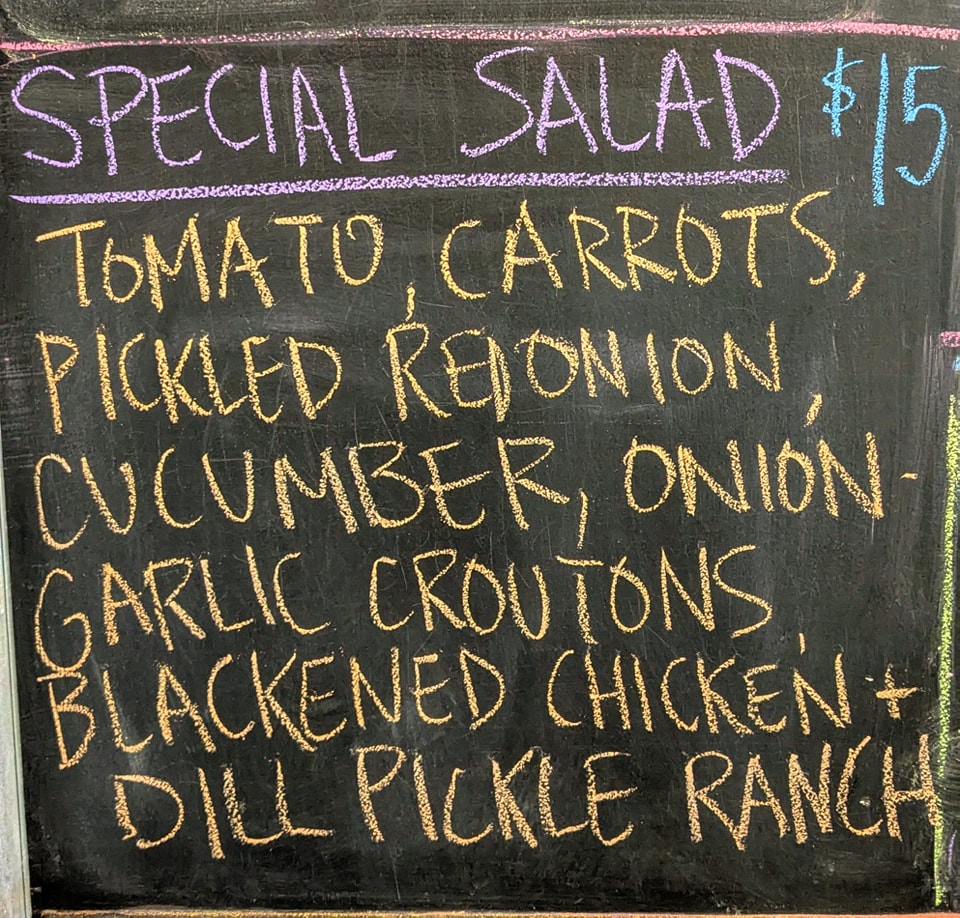 SPECIAL SALAD $15
TOMATO, CARROTS,
PICKLED RED ONION,
CUCUMBER, ONION-
GARLIC CROUTONS,
BLACKENED CHICKEN +
DILL PICKLE RANCH